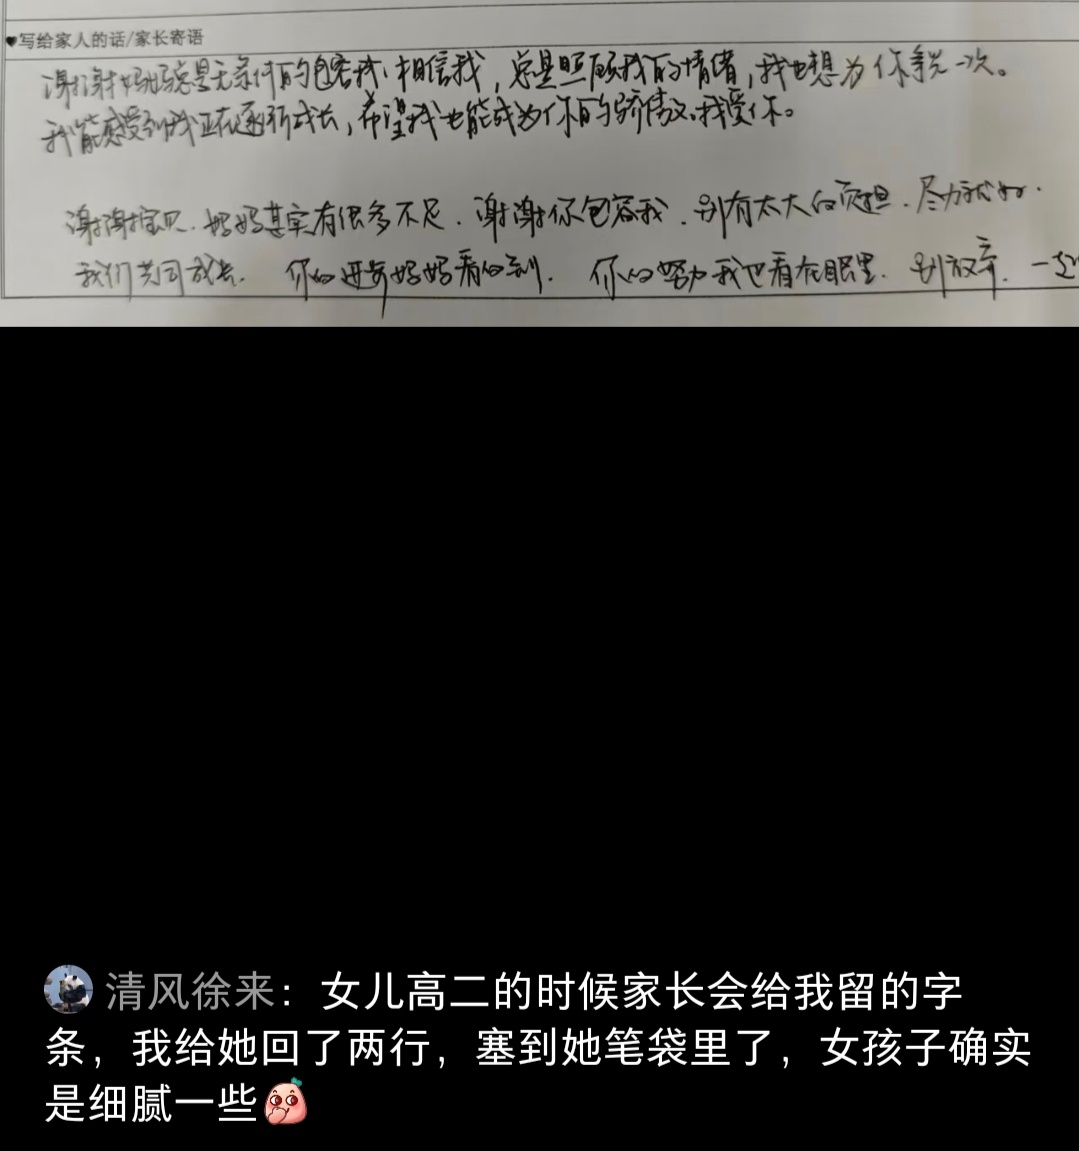 ♥写给家人的话/家长寄语
谢谢妈妈总是无条件的包容我,相信我,总是照顾我的情绪,我也想为你争光一次。
我能感受到我正在逐渐成长,希望我也能成为你的骄傲,我爱你。
谢谢宝贝.妈妈其实有很多不足.谢谢你包容我.别有太大的负担.尽力就好.
我们共同成长.你的进步妈妈看的到.你的努力我也看在眼里.别放弃.一
清风徐来:女儿高二的时候家长会给我留的字
条,我给她回了两行,塞到她笔袋里了,女孩子确实
是细腻一些